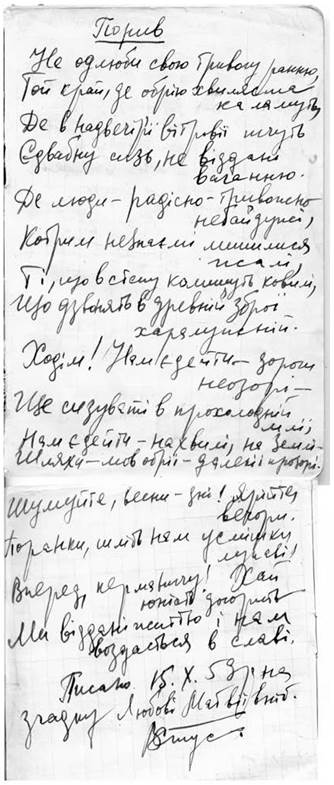 Порив
Не одлюби свою тривогу ранню,
Той край, де обрію хвиляста
каламуть,
Де в надвечір'ї вітровії тчуть
Єдвабну сизь, не віддані
ваганню.
Де люди – радісно-тривожно
небайдужі,
Котрим незнані лишилися
жалі,
Ті, що в степу колишуть ковилі,
Що дзвонять в древній зброї
харалужній.
Ходім! Нам є де йти – дороги
неозорі –
Ще сизуваті в прохолодній
млі,
Нам є де йти – на хвилі, на землі –
Шляхи – мов обрії – далекі і прозорі.
Шумуйте, весни – дні! Ярійте,
вечори.
Поранки, шліть нам усмішки
лукаві!
Вперед, керманичу! Хай
юність догорить
Ми віддані життю і нам
воздасться в славі.
Писано 15.X.59 р. на
згадку Любові Матвіївній.
ВСтус